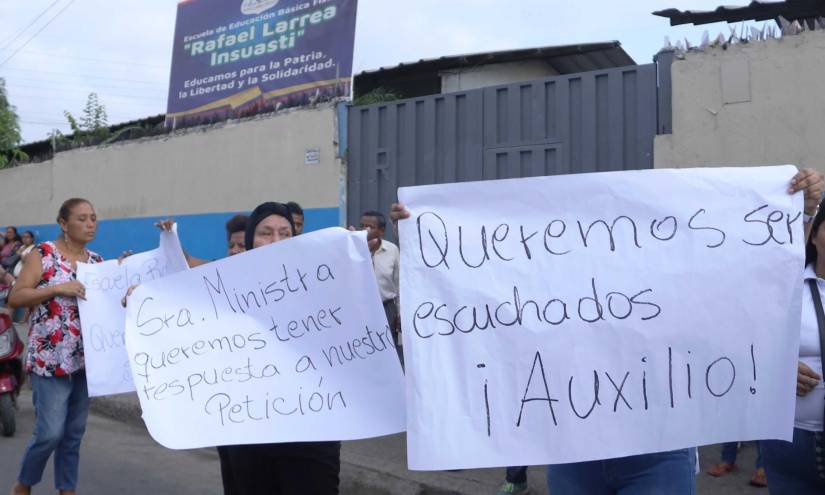 Escuela de Educación Básica
"Rafael Larrea
Insuasti"
Educamos para la Patria,
la Libertad y la Solidaridad.
Escuela
Sra. Ministra
queremos tener
respuesta a nuestra
Petición
Queremos ser
escuchados
¡Auxilio!